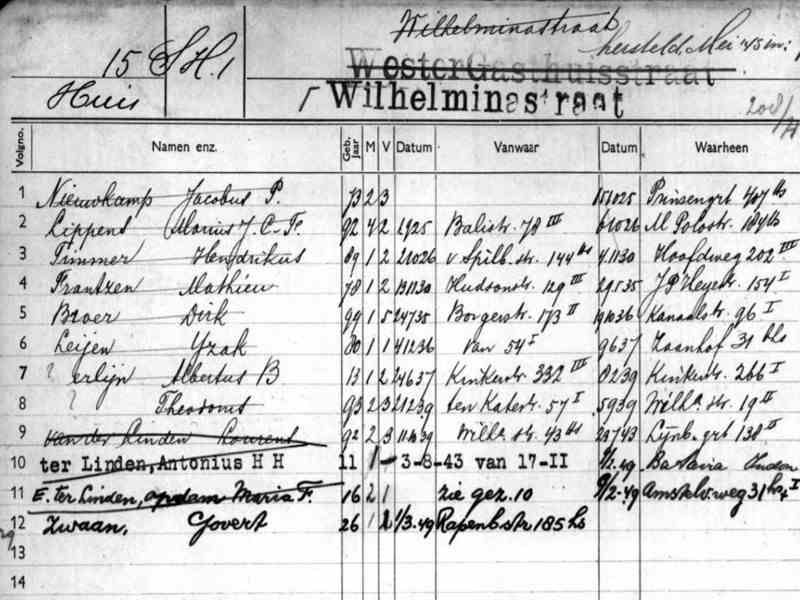 Wilhelminastraat
15 SH.1 hersteld Mei '45 in:
WesterGasthuisstraat
Huis Wilhelminastraat
Volgno. Namen enz. Geb. jaar M V Datum Vanwaar Datum Waarheen
1 Nieuwkamp Jacobus P. 73 2 3 151025 Prinsengrt 407 hs
2 Lippens Marius J. C. F. 92 4 2 1925 Balistr. 78 III 61026 M Polostr. 184 hs
3 Timmer Hendrikus 89 1 2 21026 v Spilb. str. 144 hs 41130 Hoofdweg 202 III
4 Frantzen Mathieu 78 1 2 131130 Hudsonstr. 129 III 29535 J P Heyestr. 154 I
5 Broer Dirk 99 1 5 24735 Borgerstr. 173 II 91036 Kanaalstr. 96 I
6 Leijen Yzak 80 1 1 41236 54 I 9637 Zaanhof 31 hs
7 erlijn Albertus B 13 1 2 24637 Kinkerstr. 332 III 8239 Kinkerstr. 266 I
8 Theodorus 93 2 3 21239 ten Katestr. 57 I 5939 Wilh. str. 19 II
9 van der Linden Lourens 92 2 3 Wilh. str. 43 hs 23743 Lijnb. grt 138 II
10 ter Linden, Antonius H H 11 1 - 3-8-43 van 17-II Batavia
11 E. ter Linden, opdam Maria F. 16 2 1 zie gez. 10 9/2-49 Amstelv. weg 31
12 Zwaan, Govert 26 1 2 1/3.49 Rapenb. str 185 hs
13
14